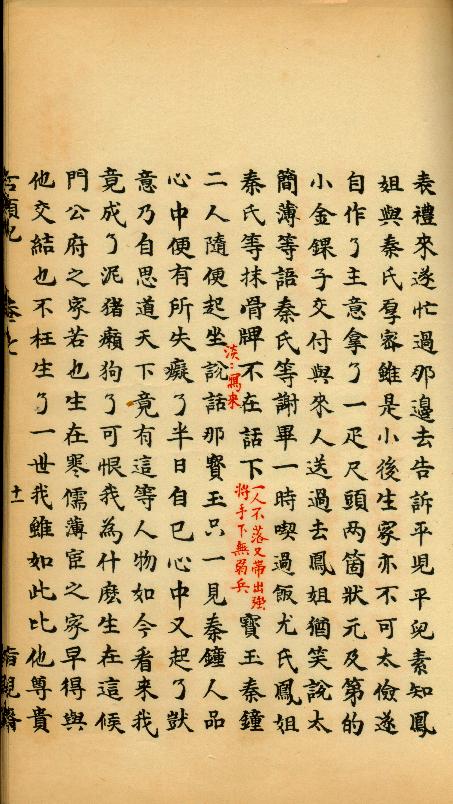 表禮來遂忙過那邊去告訴平兒平兒素知鳳
姐與秦氏厚密雖是小後生家亦不可太儉遂
自作了主意拿了一疋尺頭两箇狀元及第的
小金錁子交付與來人送過去鳳姐猶笑說太
簡薄等語秦氏等謝畢一時喫過飯尤氏鳳姐
秦氏等抹骨牌不在話下
一人不落又帶出強
將手下無弱兵
寶玉秦鐘
二人隨便起坐說話
淡:寫來
那寶玉只一見秦鐘人品
心中便有所失癡了半日自己心中又起了獃
意乃自思道天下竟有這等人物如今看來我
竟成了泥猪癩狗了可恨我為什麽生在這候
門公府之家若也生在寒儒薄宦之家早得與
他交結也不枉生了一世我雖如此比他尊貴
十一